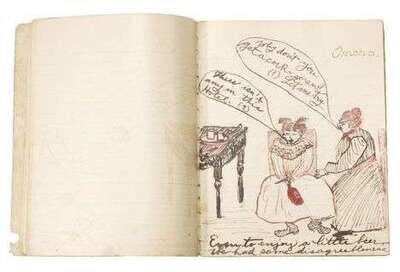 Omaha.
Why don't you
get a cork-screw
(1) Let me try
There isn't
any in this
Hotel. (2)
Even to enjoy a little beer
we had some disagreeableness